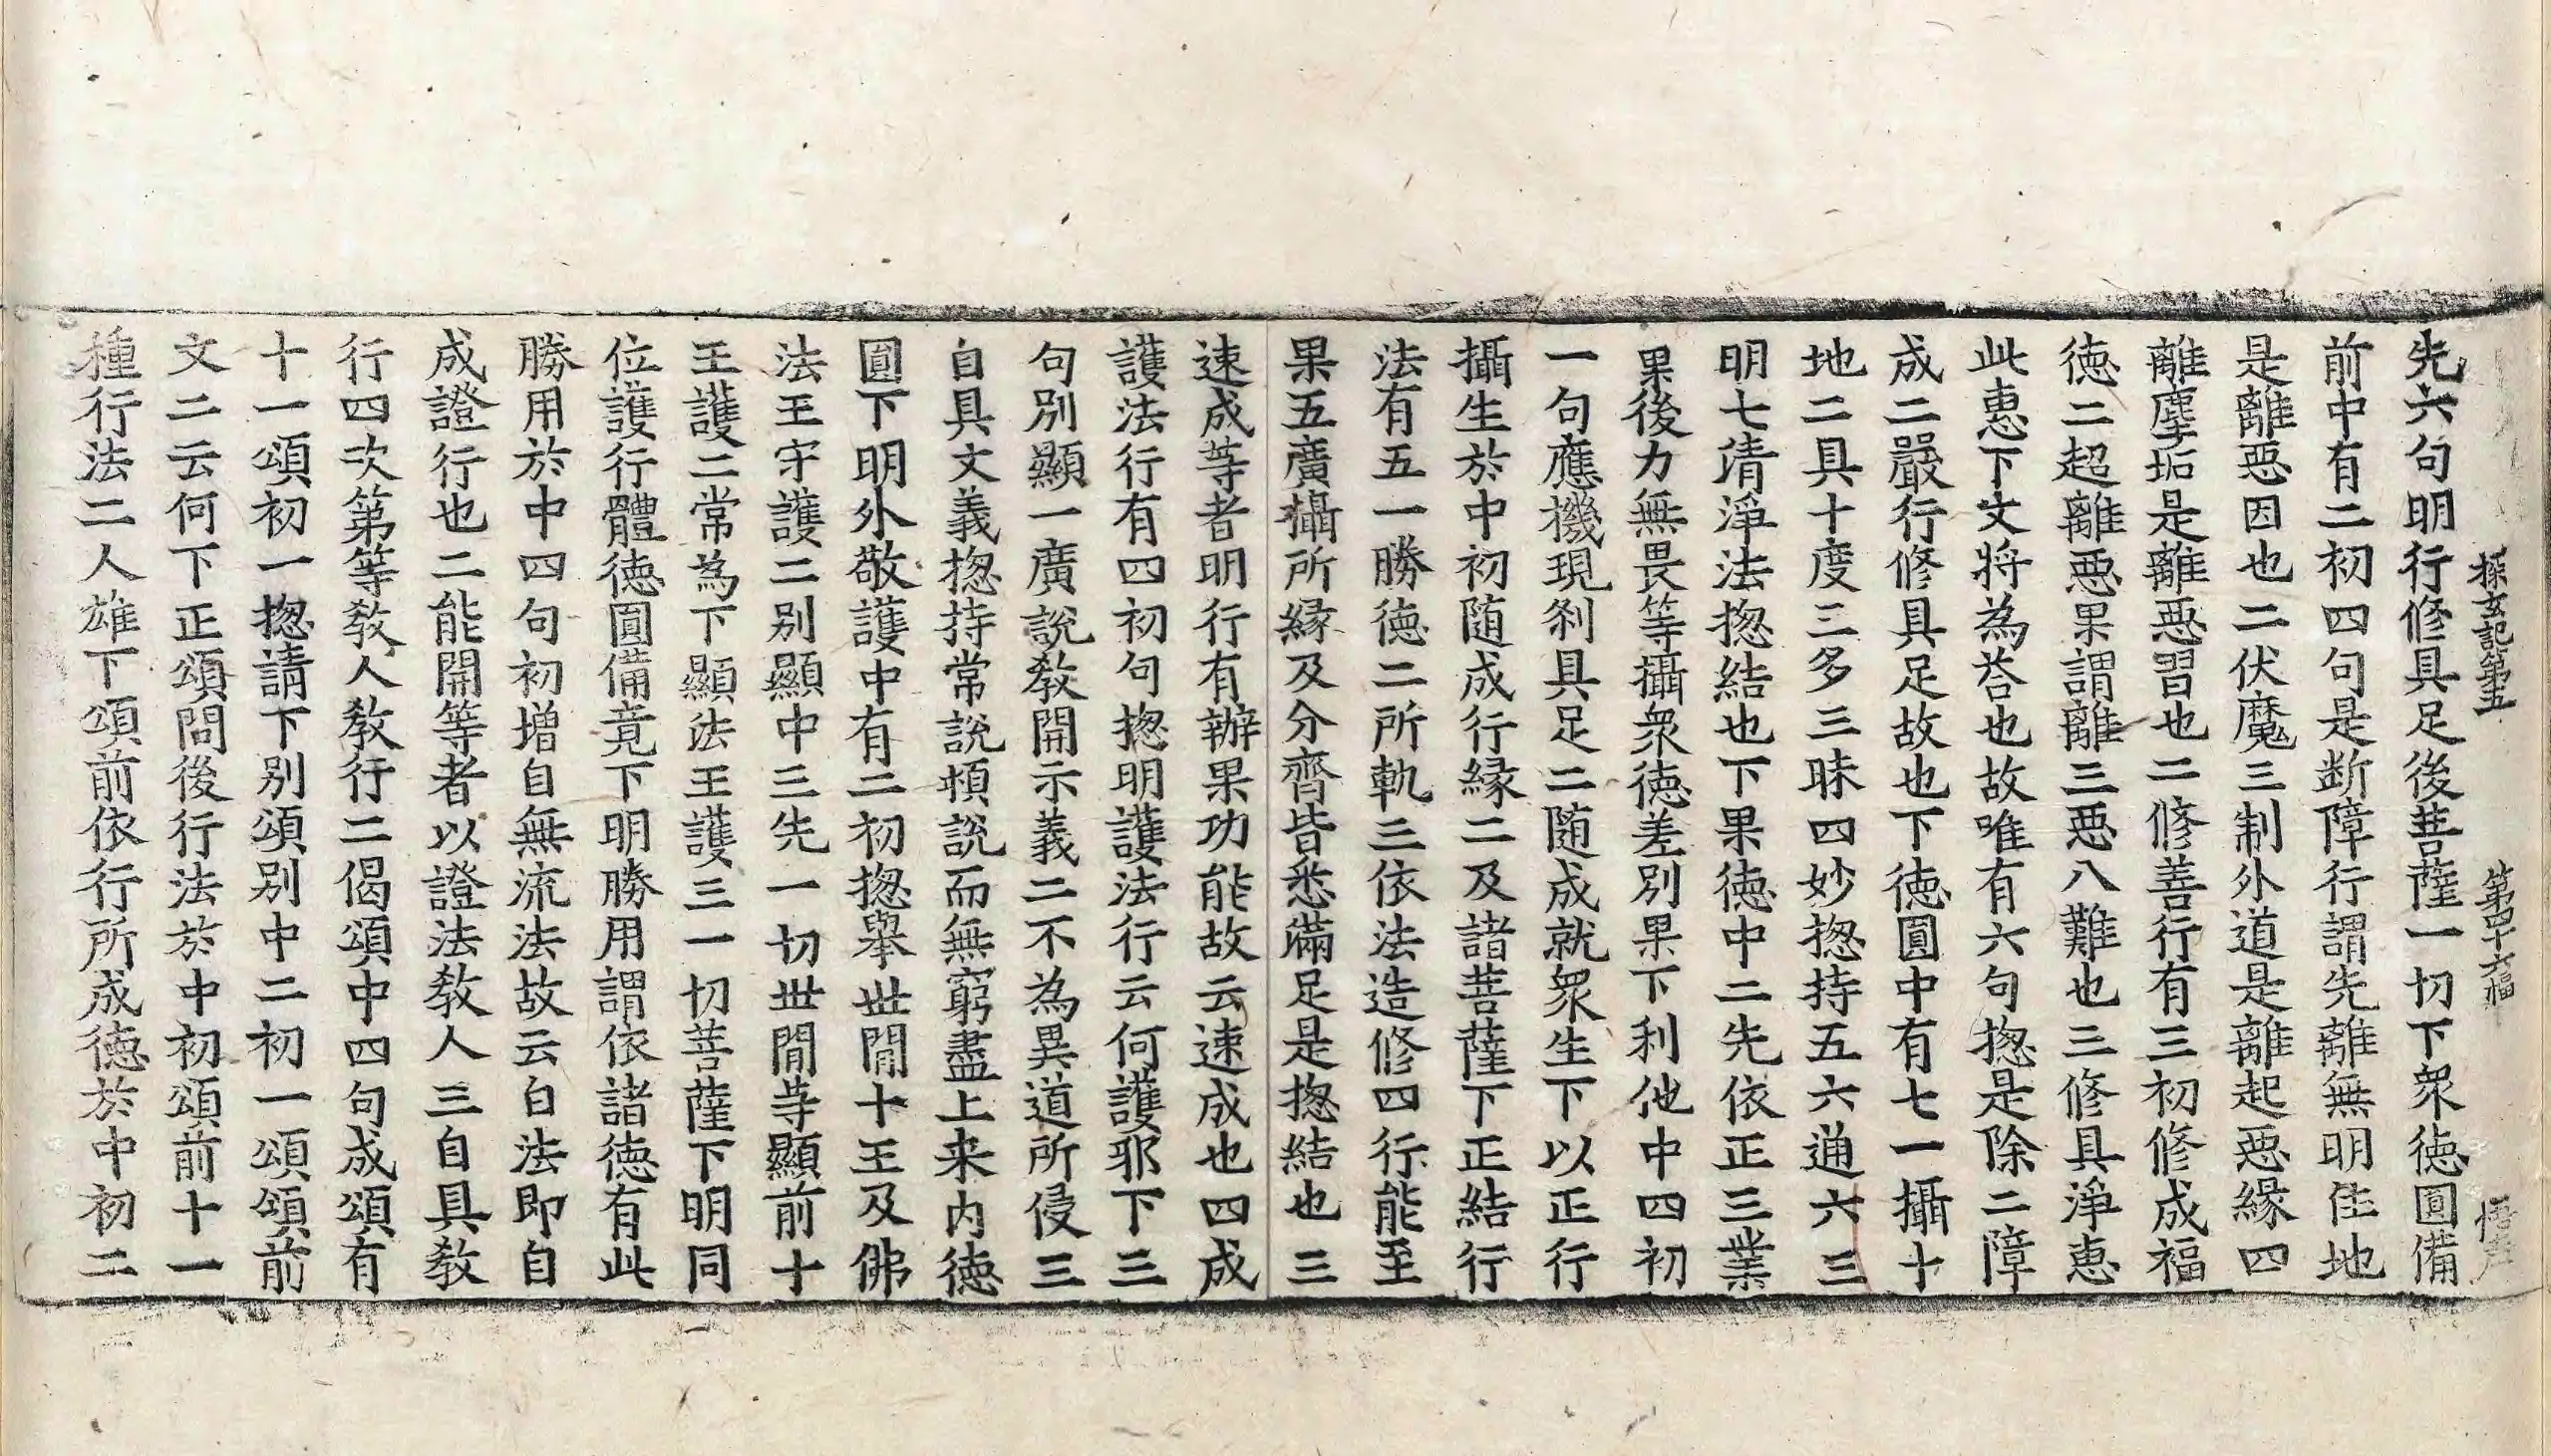 探玄記第五 第四十六幅
先六句明行修具足後菩薩一切下衆徳圓備
前中有二初四句是断障行謂先離無明住地
是離惡因也二伏魔三制外道是離起惡縁四
離塵垢是離惡習也二修善行有三初修成福
徳二超離惡果謂離三惡八難也三修具淨恵
此恵下文将為荅也故唯有六句揔是除二障
成二嚴行修具足故也下徳圓中有七一攝十
地二具十度三多三昧四妙揔持五六通六三
明七清淨法揔結也下果徳中二先依正三業
果後力無畏等攝衆徳差別果下利他中四初
一句應機現刹具足二随成就衆生下以正行
攝生於中初随成行縁二及諸菩薩下正結行
法有五一勝徳二所軌三依法造修四行能至
果五廣攝所縁及分齊皆悉滿足是揔結也三
速成等者明行有辦果功能故云速成也四成
護法行有四初句揔明護法行云何護耶下三
句別顯一廣說教開示義二不為異道所侵三
自具文義揔持常說頓說而無窮盡上来内徳
圓下明外敬護中有二初揔舉世間十王及佛
法王守護二別顯中三先一切世間等顯前十
王護二常為下顯法王護三一切菩薩下明同
位護行體徳圓備竟下明勝用謂依諸徳有此
勝用於中四句初增自無流法故云白法即自
成證行也二能開等者以證法教人三自具教
行四次第等教人教行二偈頌中四句成頌有
十一頌初一揔請下別頌別中二初一頌頌前
文二云何下正頌問後行法於中初頌前十一
種行法二人雄下頌前依行所成徳於中初二